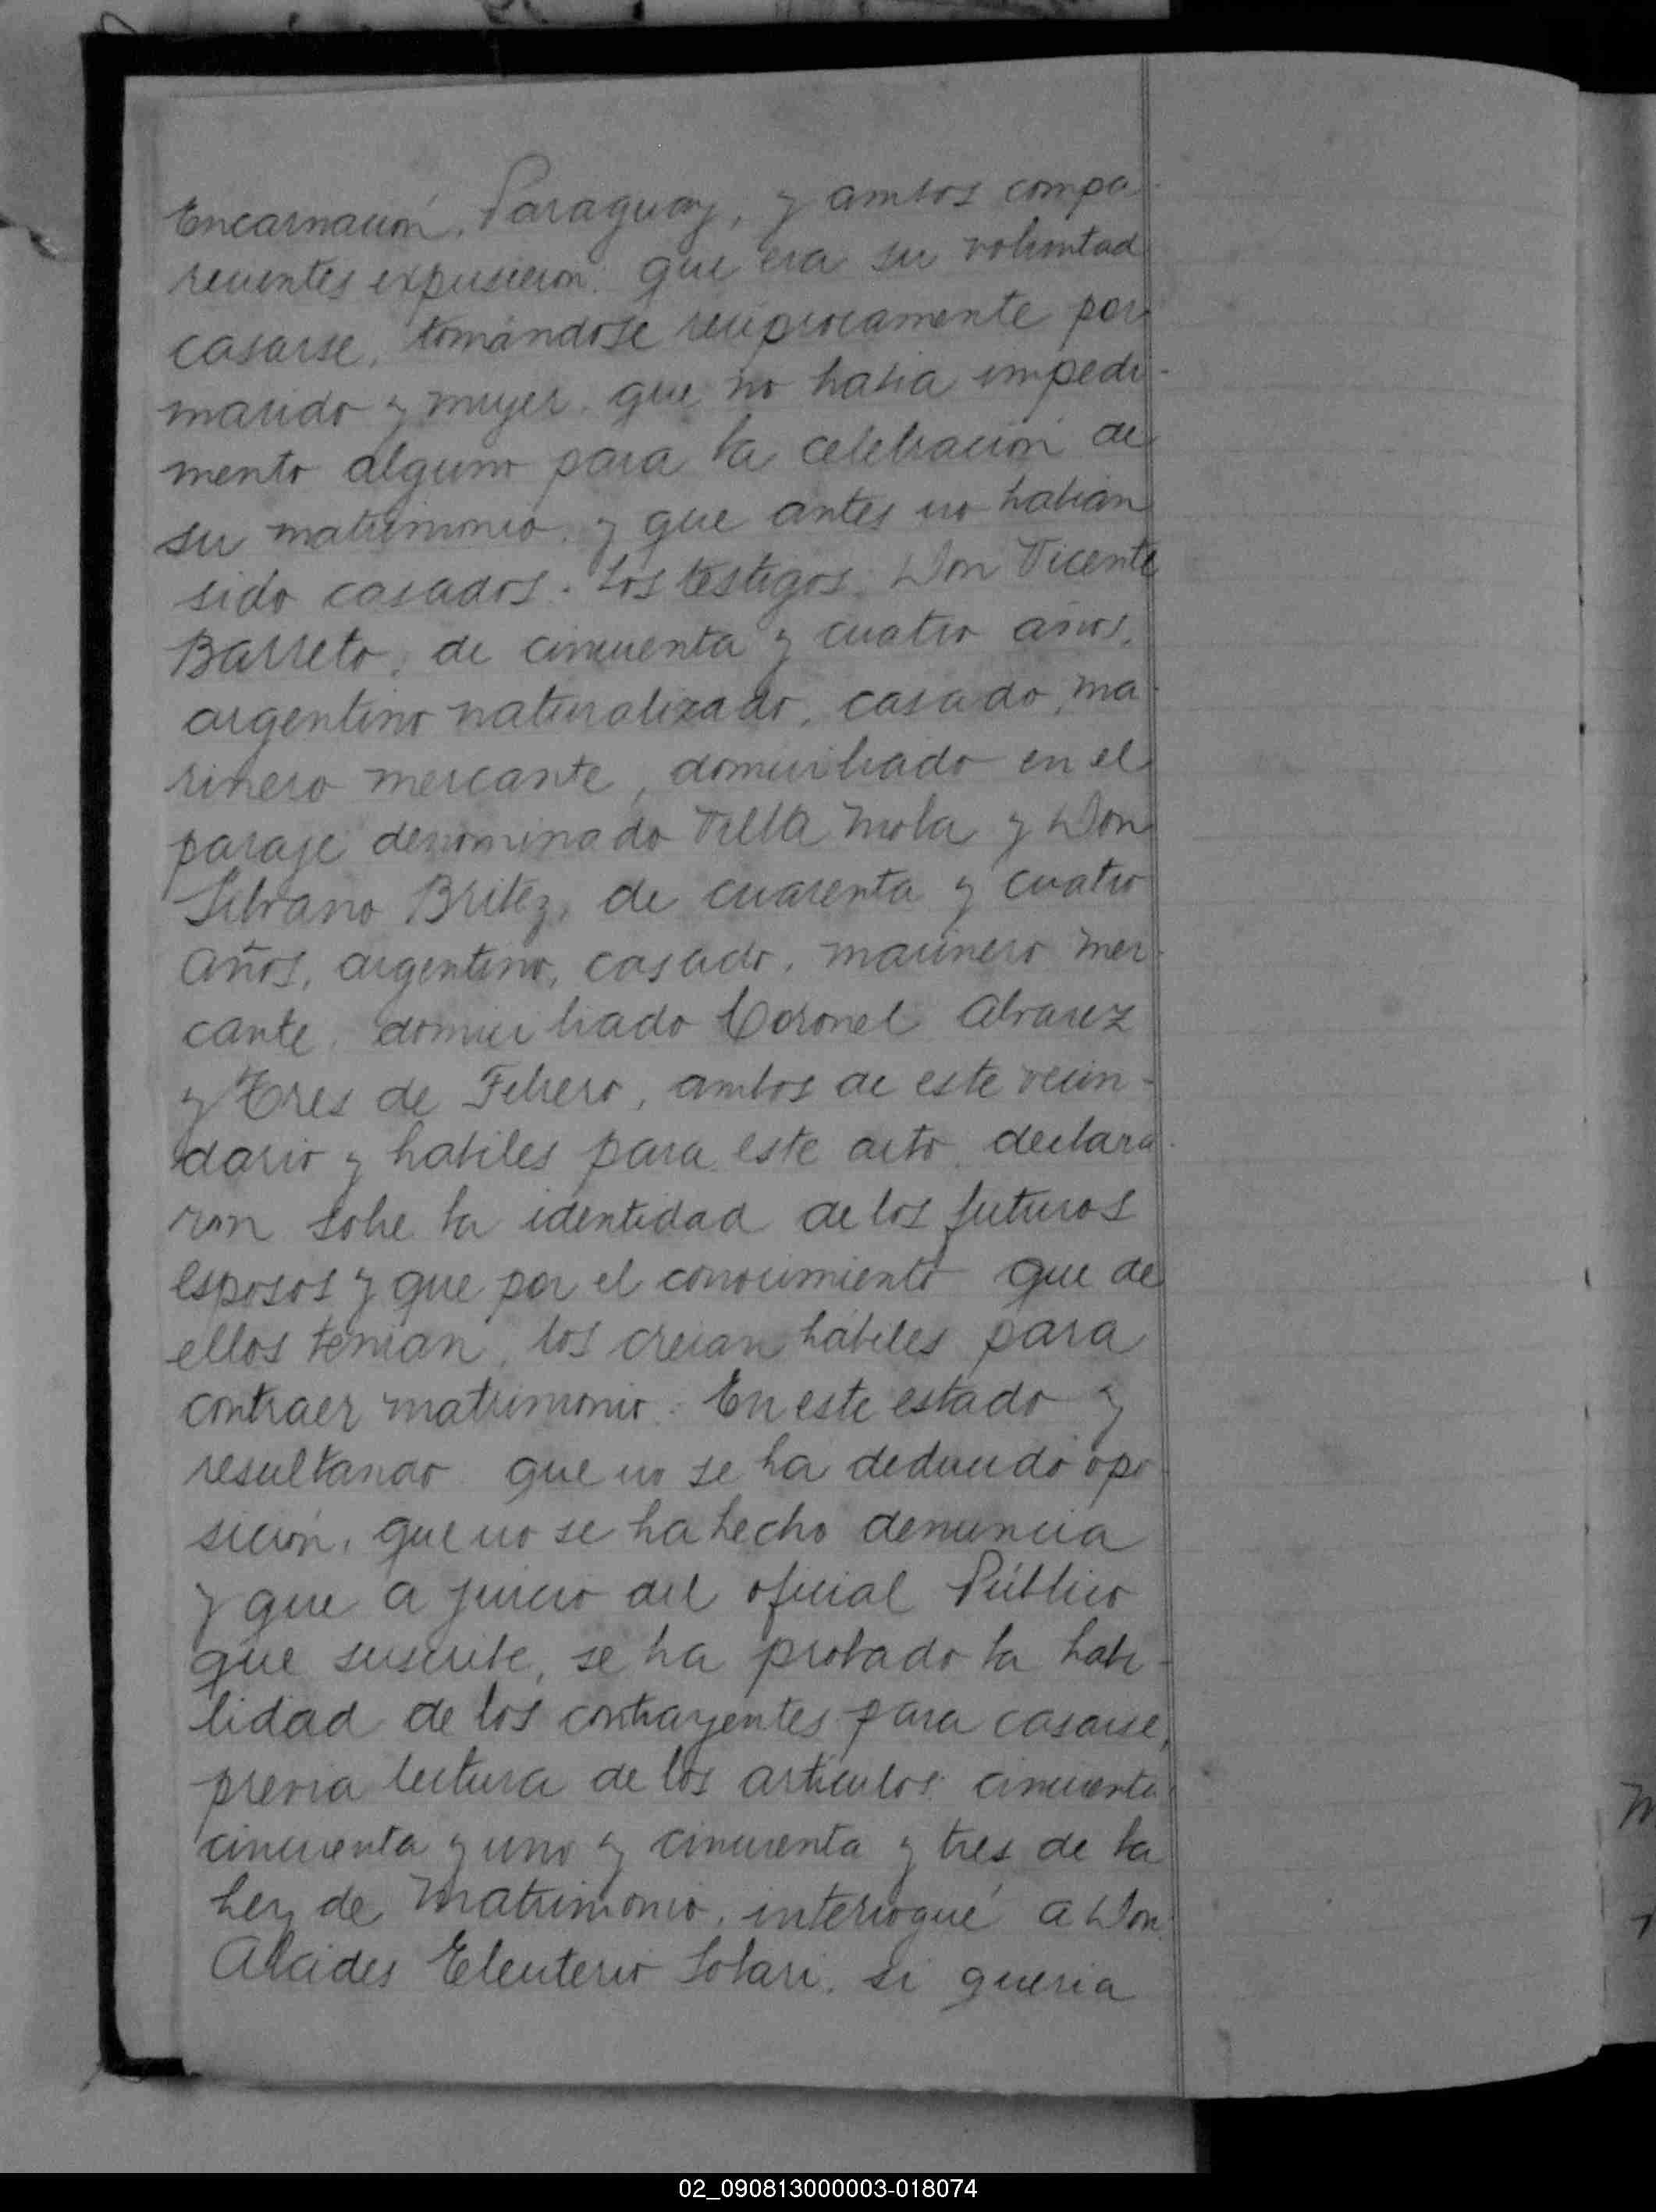 Encarnación, Paraguay, y ambos compa-
recientes expusieron: que era su voluntad
casarse, tomándose reciprocamente por
marido y mujer, que no habia impedi-
mento alguno para la celebración de
su matrimonio, y que antes no habian
sido casados. Los testigos: Don Vicente
Barreto, de cincuenta y cuatro años,
argentino naturalizado, casado, ma-
rinero mercante, domiciliado en el
paraje denominado Villa Mola y Don
Silvano Britez, de cuarenta y cuatro
años, argentino, casado, marinero mer-
cante, domiciliado Coronel Alvarez
y Tres de Febrero, ambos de este vecin-
dario y habiles para este acto, declara-
ron sobre la identidad de los futuros
esposos y que por el conocimiento que de
ellos tenian, los creian hábiles para
contraer matrimonio. En este estado y
resultando que no se ha deducido opo-
sición, que no se ha hecho denuncia
y que a juicio del oficial Público
que suscribe, se ha probado la habi-
lidad de los contrayentes para casarse,
previa lectura de los articulos cincuenta
cincuenta y uno y cincuenta y tres de la
Ley de Matrimonio, interrogué a Don
Alcides Eleuterio Solari, si queria
02_090813000003-018074